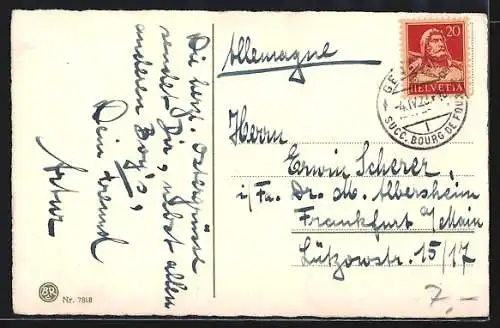 Die herzl. Ostergrüsse
sendet Dir, nebst allen
anderen Boy's,
Dein Freund
Artur
Allemagne
20
HELVETIA
SUCC. BOURG DE FOUR
Herrn
Erwin Scherer,
i/Fa. Dr. M. Albersheim
Frankfurt a/Main
Lützowstr. 15/17
7,-
Nr. 7818